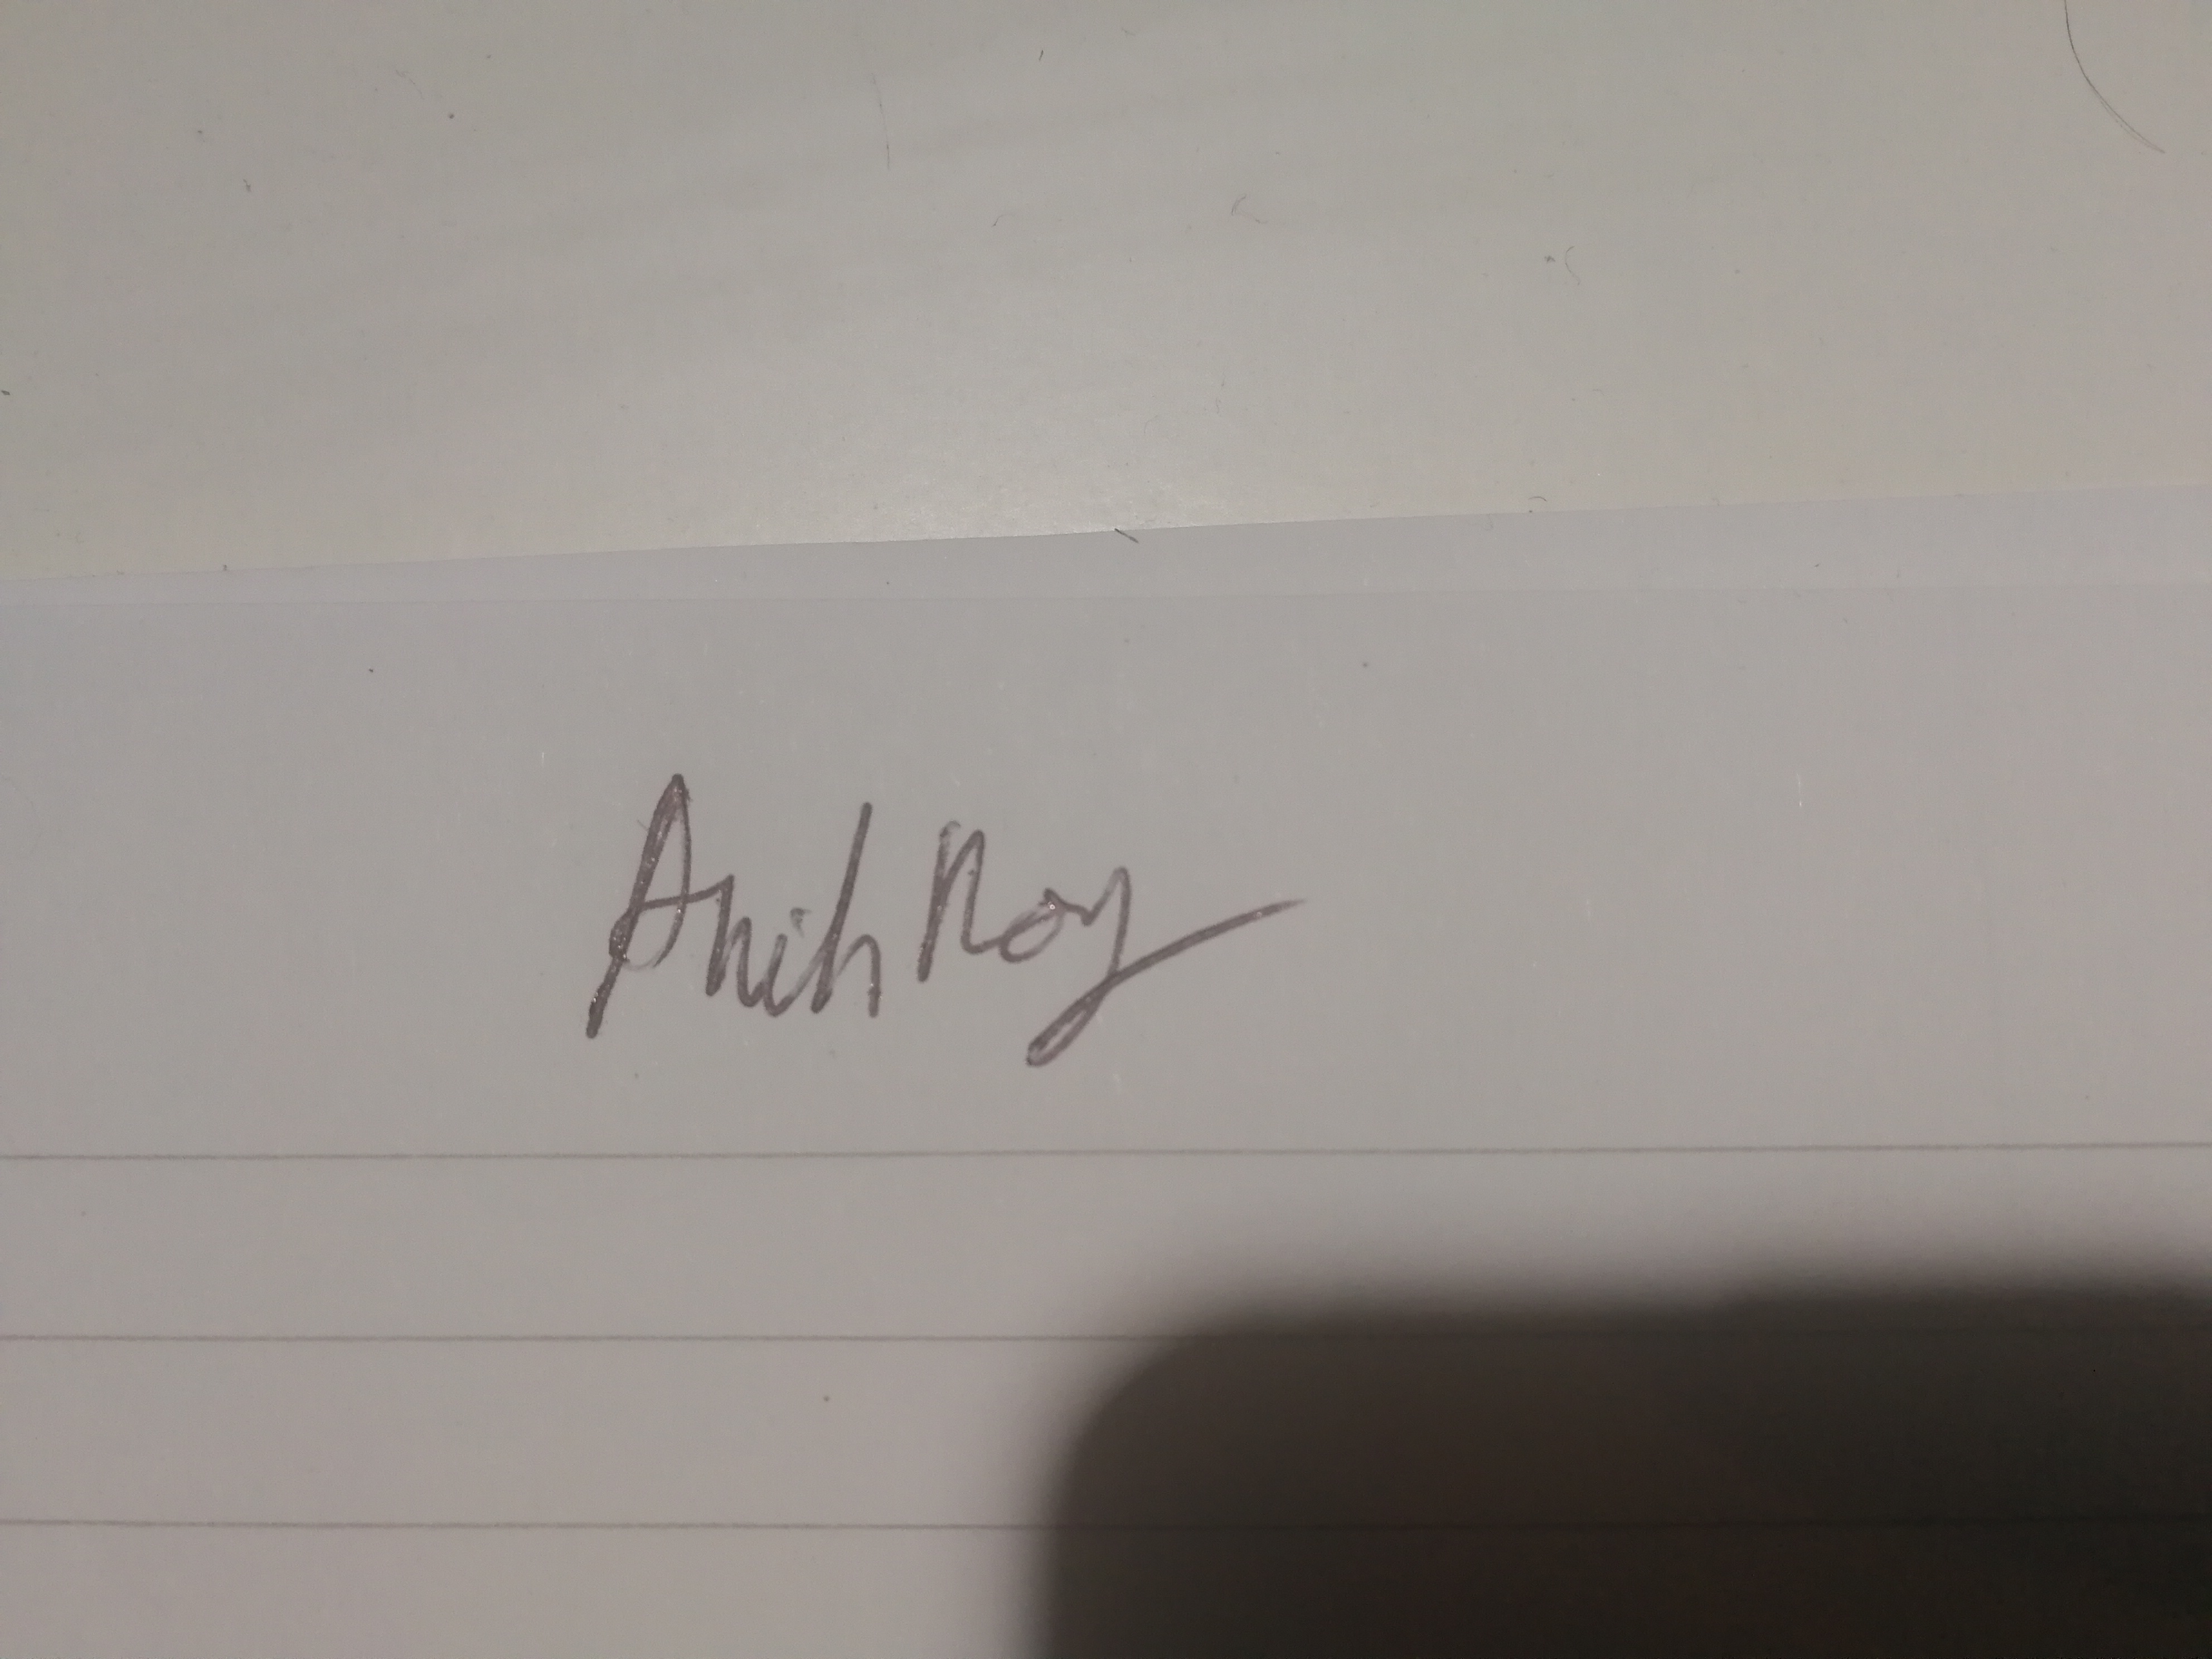 Anih Roy